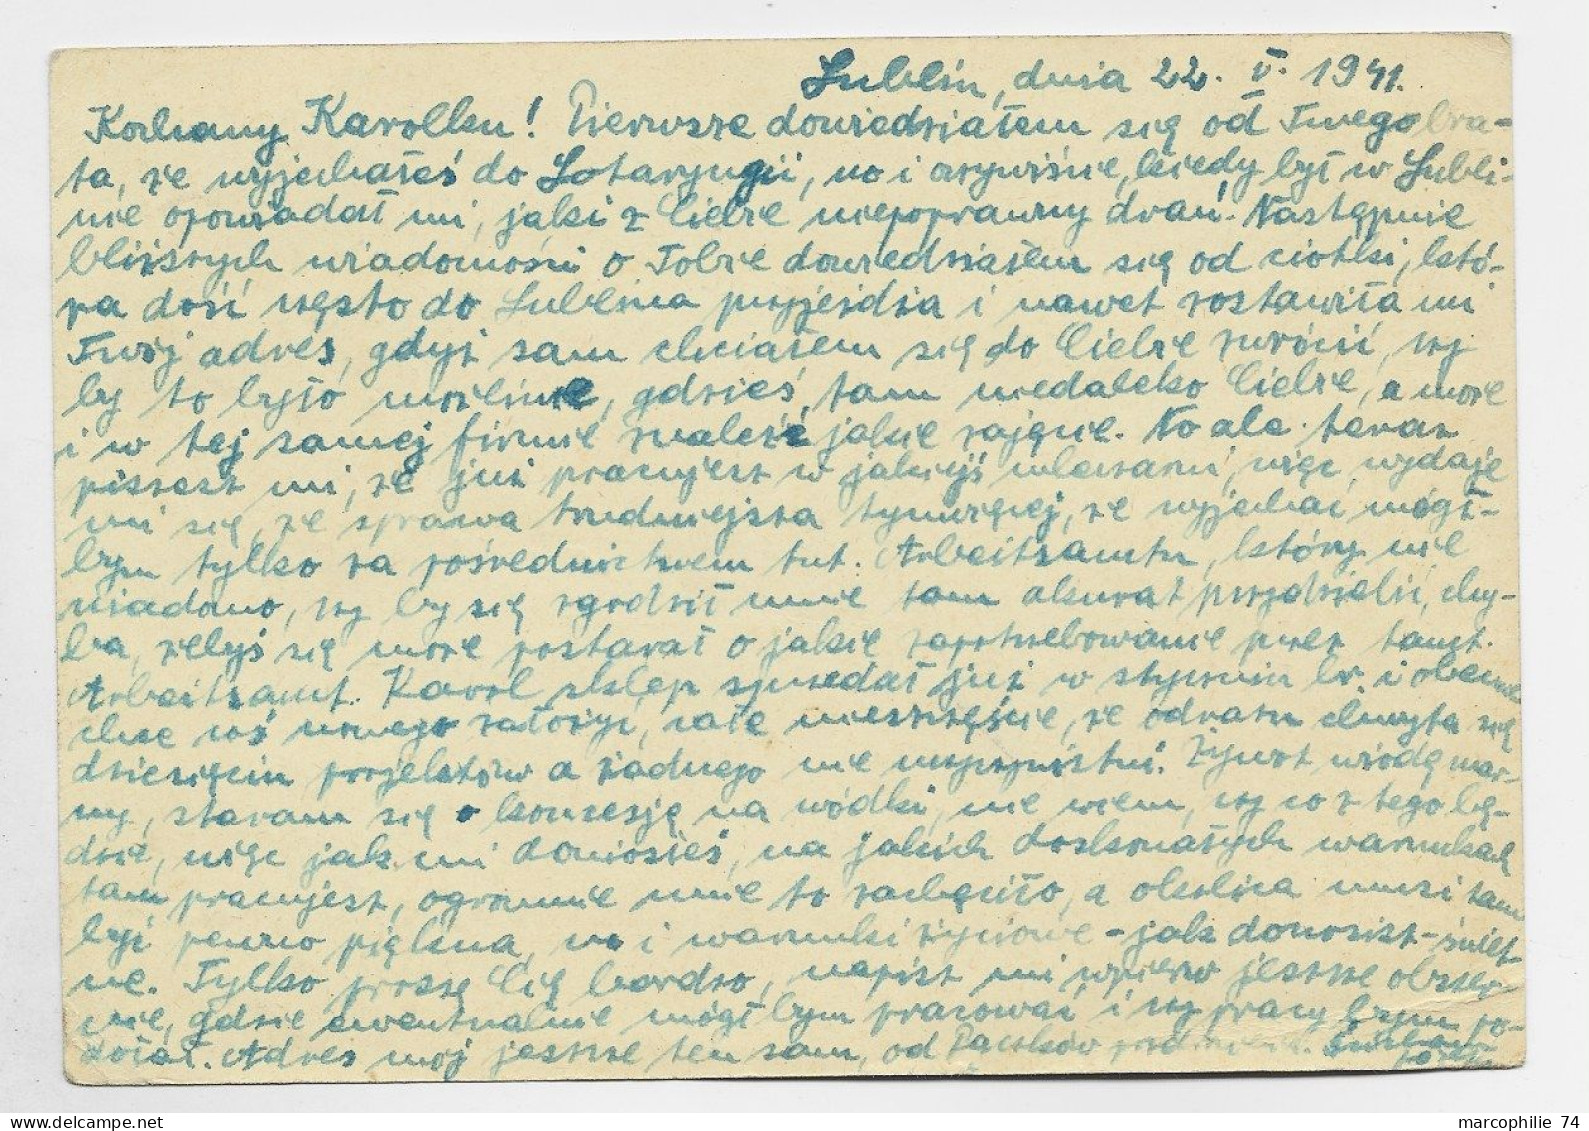 Lublin, dnia 22. V. 1941.
Kochany Karolku! Pierwsze dowiedziałem się od Twego bra-
ta, że wyjechałeś do Lotaryngii, no i oczywiście, kiedy był w Lubli-
nie opowiadał mi, jaki z Ciebie niepoprawny drań. Następnie
bliższych wiadomości o Tobie dowiedziałem się od ciotki, któ-
ra dość często do Lublina przyjeżdża i nawet zostawiła mi
Twój adres, gdyż sam chciałem się do Ciebie zwrócić, czy
by to było możliwe, gdzieś tam niedaleko Ciebie, a może
i w tej samej firmie znaleźć jakie zajęcie. No ale teraz
piszesz mi, że już pracujesz w jakiejś mleczarni, więc wydaje
mi się, że sprawa trudniejsza tymwięcej, że wyjechać mógł-
bym tylko za pośrednictwem tut. Arbeitsamtu, który nie
wiadomo, czy by się zgodził mnie tam akurat przydzielić, chy-
ba, żebyś się może postarał o jakie zapotrzebowanie przez tamt.
Arbeitsamt. Karol sklep sprzedał już w styczniu br. i obecnie
chce coś nowego założyć, całe nieszczęście, że odrazu chwyta się
dziesięciu projektów a żadnego nie uczyni. Żywot wiodę mar-
ny, staram się o koncesję na wódki, nie wiem, czy co z tego bę-
dzie, więc jak mi doniosłeś, na jakich doskonałych warunkach
tam pracujesz, ogromnie mnie to zachęciło, a okolica musi tam
być pewno piękna, no i warunki życiowe - jak donosisz - świet-
ne. Tylko proszę Cię bardzo, napisz mi wpierw jeszcze obszer-
nie, gdzie ewentualnie mógłbym pracować i czy pracy bym po-
dołał. Adres mój jeszcze ten sam, od Pączków
marcophilie 74